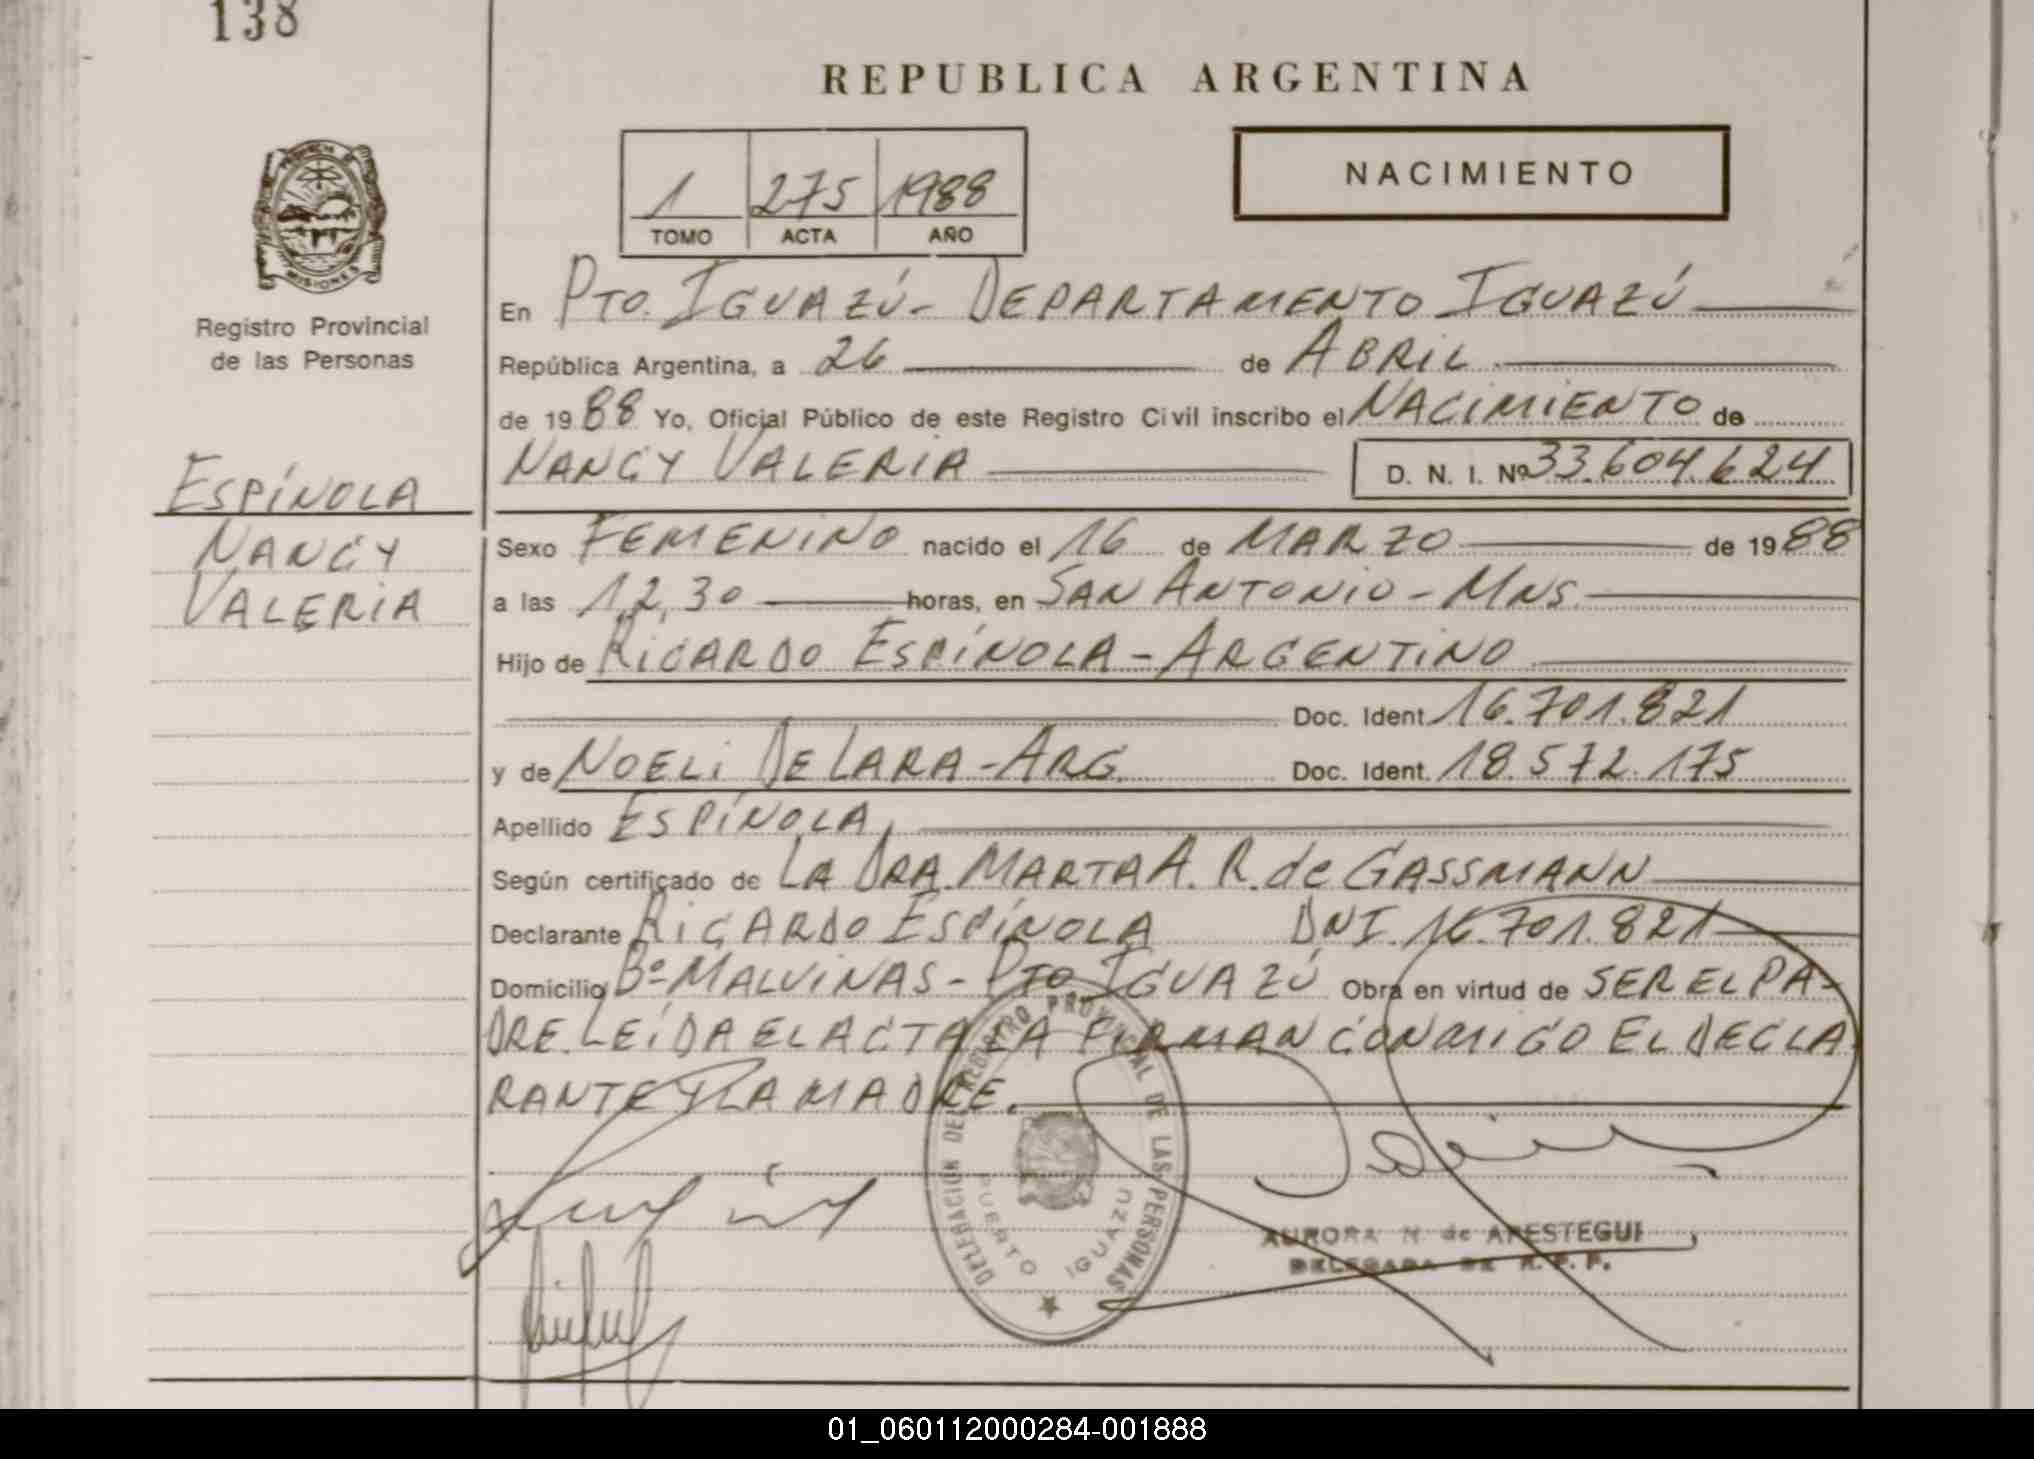 138
REPUBLICA ARGENTINA
PROVINCIA DE
MISIONES
Registro Provincial
de las Personas
1 275 1988
TOMO ACTA AÑO
NACIMIENTO
En PTO. IGUAZÚ - DEPARTAMENTO IGUAZÚ
República Argentina, a 26 de ABRIL
de 1988 Yo, Oficial Público de este Registro Civil inscribo el NACIMIENTO de
NANCY VALERIA D. N. I. Nº 33.604.624
ESPÍNOLA
NANCY
VALERIA
Sexo FEMENINO nacido el 16 de MARZO de 1988
a las 12,30 horas, en SAN ANTONIO - MNS.
Hijo de RICARDO ESPÍNOLA - ARGENTINO
Doc. Ident. 16.701.821
y de NOELI DE LARA - ARG. Doc. Ident. 18.572.175
Apellido ESPÍNOLA,
Según certificado de LA DRA. MARTA A. R. de GASSMANN
Declarante RICARDO ESPÍNOLA DNI. 16.701.821
Domicilio Bº MALVINAS - PTO IGUAZÚ Obra en virtud de SER EL PA-
DRE. LEÍDA EL ACTA LA FIRMAN CONMIGO EL DECLA
RANTE Y LA MADRE.
DELEGACIÓN DEL REGISTRO PROVINCIAL DE LAS PERSONAS
PUERTO IGUAZU
AURORA N. de APESTEGUI
DELEGADA DE R. P. P.
01_060112000284-001888